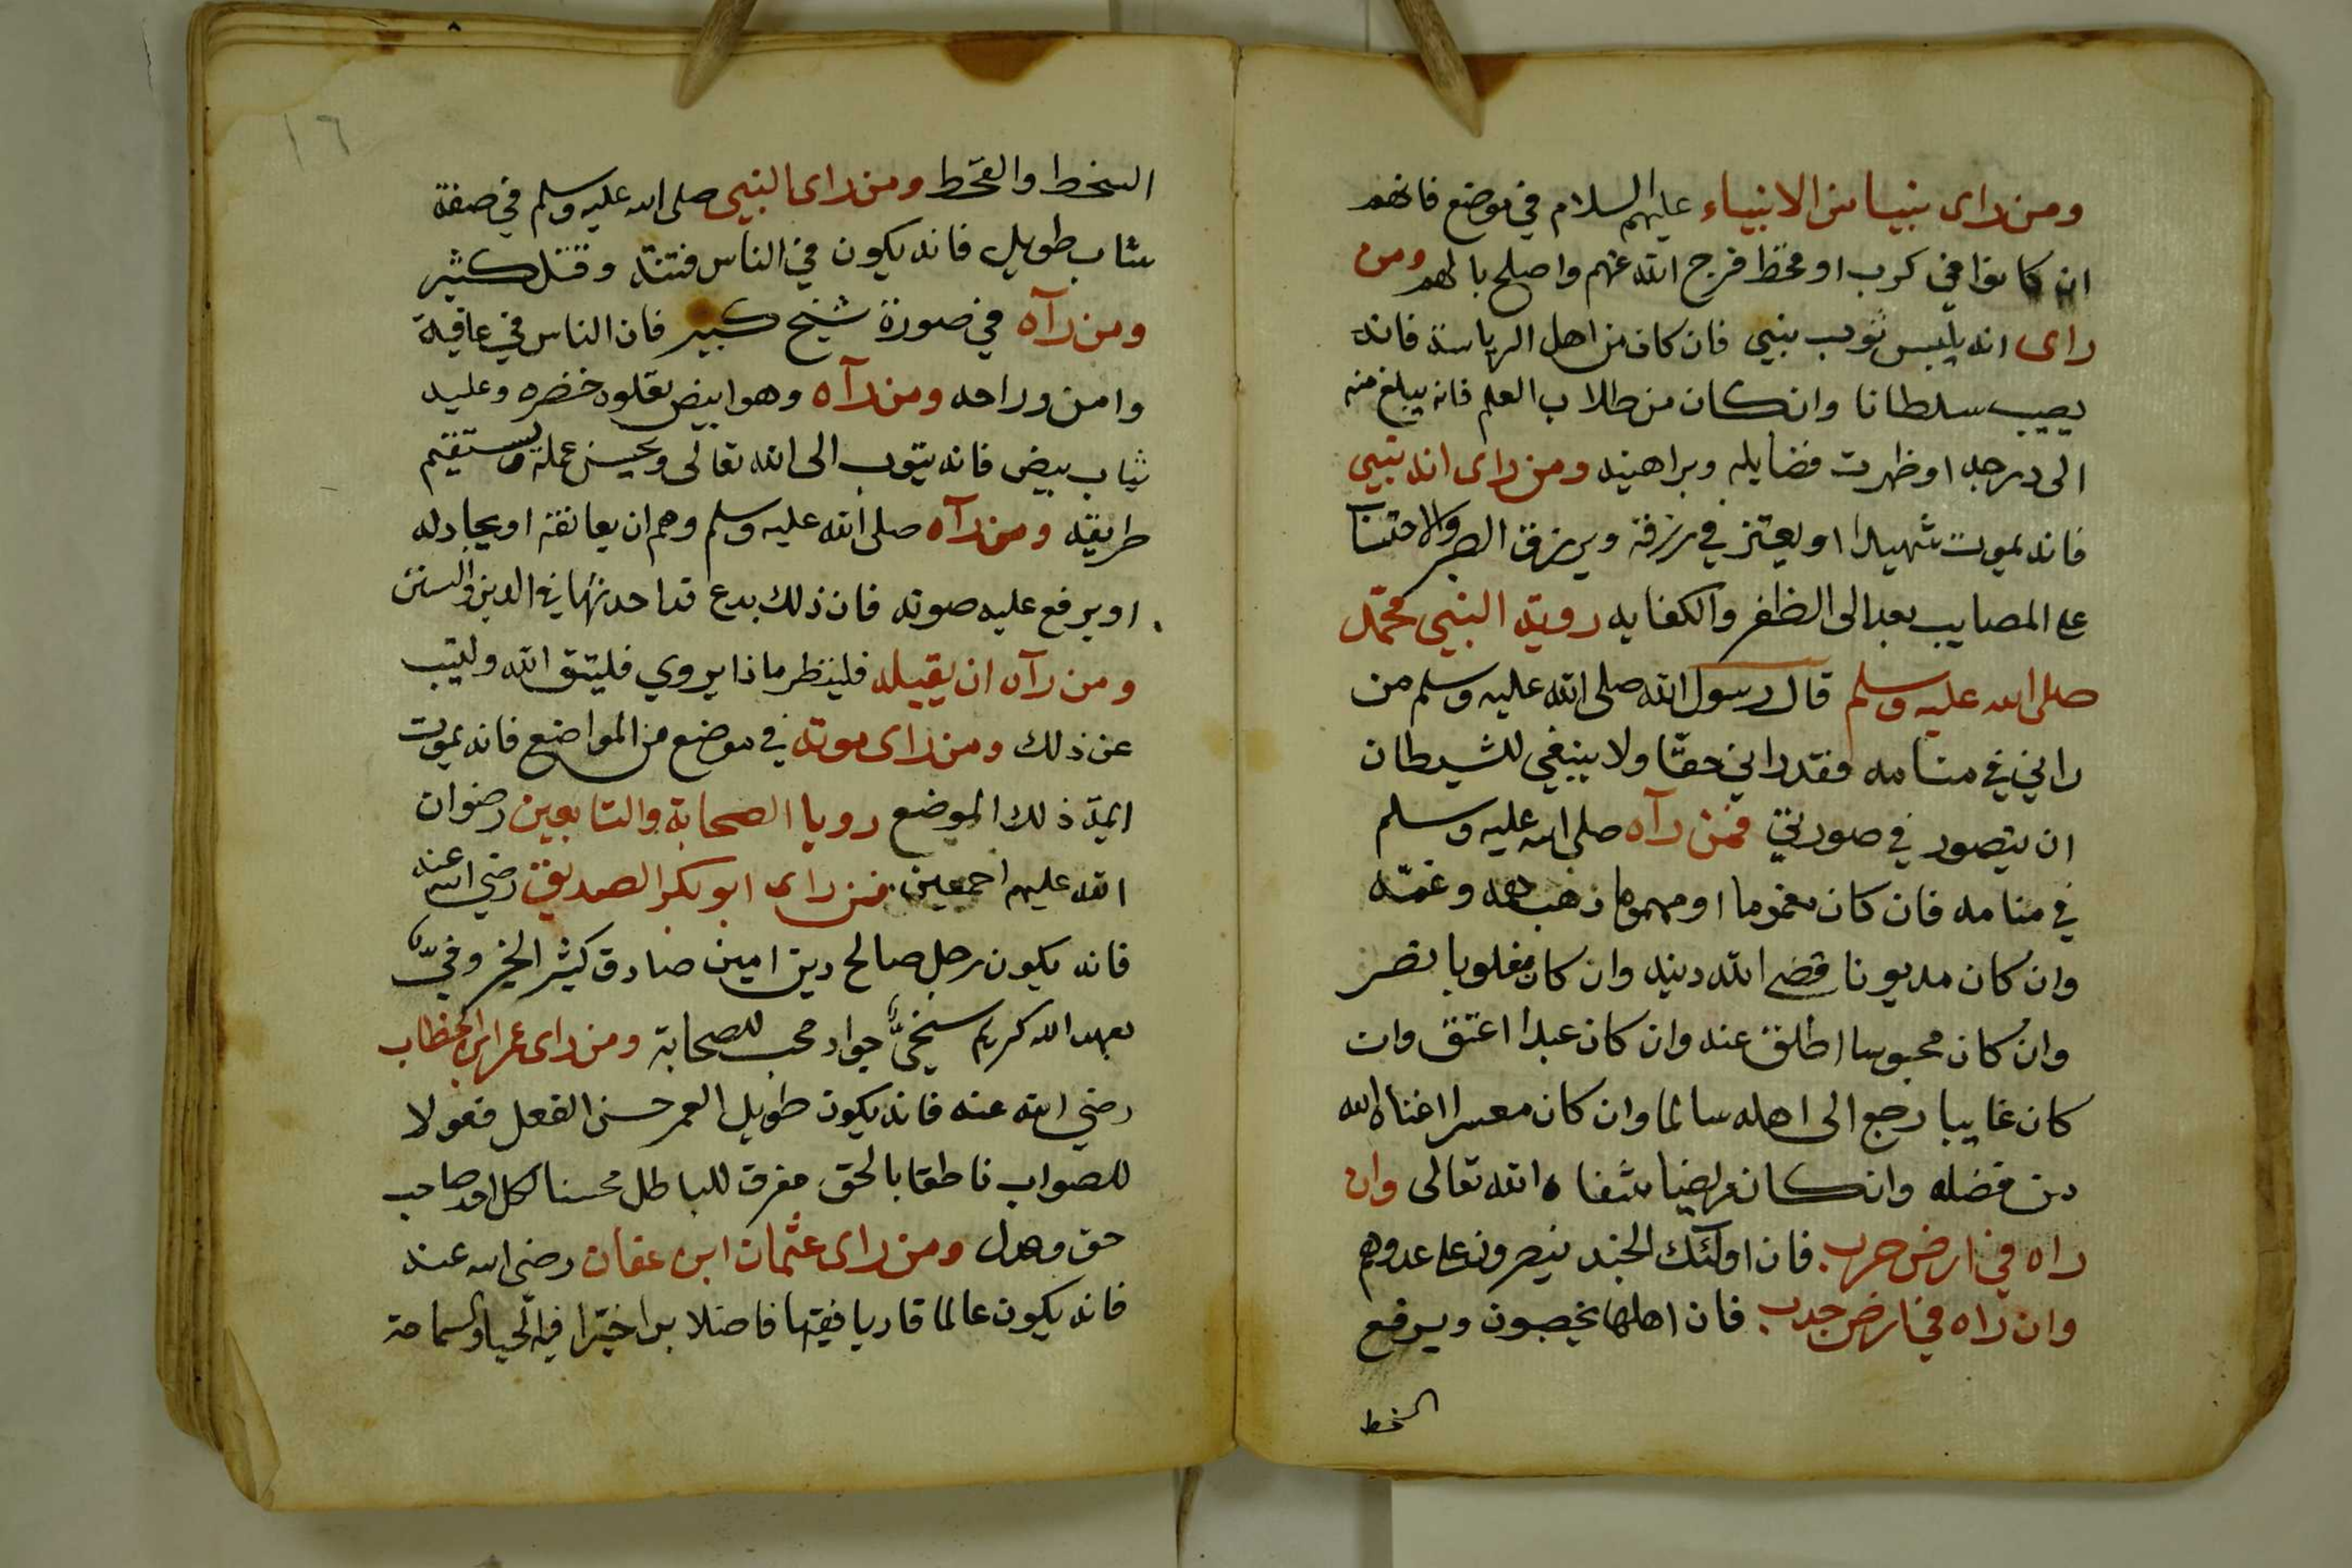 ومن راى نبيا من الانبياء عليهم السلام في موضع فانهم
ان كانوا في كرب او قحط فرج الله عنهم واصلح بالهم ومن
راى انه يلبس ثوب نبي فان كان من اهل الرياسة فانه
يصيب سلطانا وان كان من طلاب العلم فانه يبلغ منه
الى درجه او ظهرت فضايله وبراهينه ومن راى انه نبي
فانه يموت شهيدا او يعتز في رزقه ويرزق الصبر والاحتسا
على المصايب بعد الى الظفر والكفايه روية النبي محمد
صلى الله عليه وسلم قال رسول الله صلى الله عليه وسلم من
راني في منامه فقد راني حقا ولا ينبغي للشيطان
ان يتصور في صورتي فمن رآه صلى الله عليه وسلم
في منامه فان كان مغموما او مهموما ذهب همه وغمه
وان كان مديونا قضى الله دينه وان كان مغلوبا نصر
وان كان محبوسا اطلق عنه وان كان عبدا اعتق وان
كان غايبا رجع الى اهله سالما وان كان معسرا اغناه الله
من فضله وان كان مريضا شفاه الله تعالى وان
راه في ارض حرب فان اولئك الجند ينصرون على عدوهم
وان راه في ارض جدب فان اهلها يخصبون ويرفع
السخط
١٦
السخط والقحط ومن راى النبي صلى الله عليه وسلم في صفة
شاب طويل فانه يكون في الناس فتنة وقتل كثير
ومن رآه في صورة شيخ كبير فان الناس في عافية
وامن وراحه ومن رآه وهو ابيض يعلوه خضره وعليه
ثياب بيض فانه يتوب الى الله تعالى ويحسن عمله ويستقيم
طريقه ومن رآه صلى الله عليه وسلم وهم ان يعانقه او يجادله
او يرفع عليه صوته فان ذلك بدع قد احدثها في الدين والسنن
ومن رآه ان يقبله فلينظر ماذا يروي فليتق الله وليتب
عن ذلك ومن راى موته في موضع من المواضع فانه يموت
ايمة ذلك الموضع رويا الصحابة والتابعين رضوان
الله عليهم اجمعين فمن راى ابو بكر الصديق رضي الله عنه
فانه يكون رجل صالح دين امين صادق كثير الخير وفيّا
بعهد الله كريم سخيّا جواد محب للصحابة ومن راى عمر ابن الخطاب
رضي الله عنه فانه يكون طويل العمر حسن الفعل فعولا
للصواب ناطقا بالحق مفرق للباطل محسنا لكل احد صاحب
حق وعدل ومن راى عثمان ابن عفان رضي الله عنه
فانه يكون عالما قاريا فقيها فاضلا برا خيرا فيه الحيا والسماحة